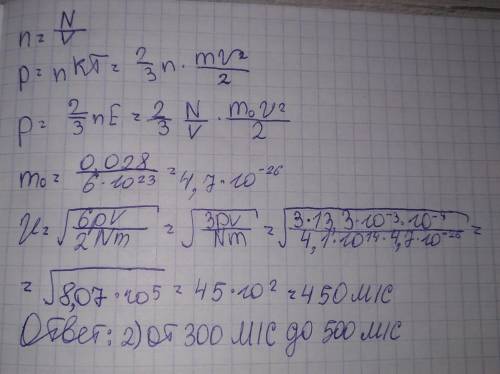 n = N/V
p = nkT = 2/3 n · mv²/2
p = 2/3 nE = 2/3 N/V · m₀v²/2
m₀ = 0,028/6·10²³ = 4,7·10⁻²⁶
v = √(6pv/2Nm) = √(3pv/Nm) = √(3·13,3·10⁻³·10⁻⁴/4,1·10¹⁴·4,7·10⁻²⁶) =
= √(8,07·10⁵) = 45·10² = 450 м/с
Ответ: 2) от 300 м/с до 500 м/с